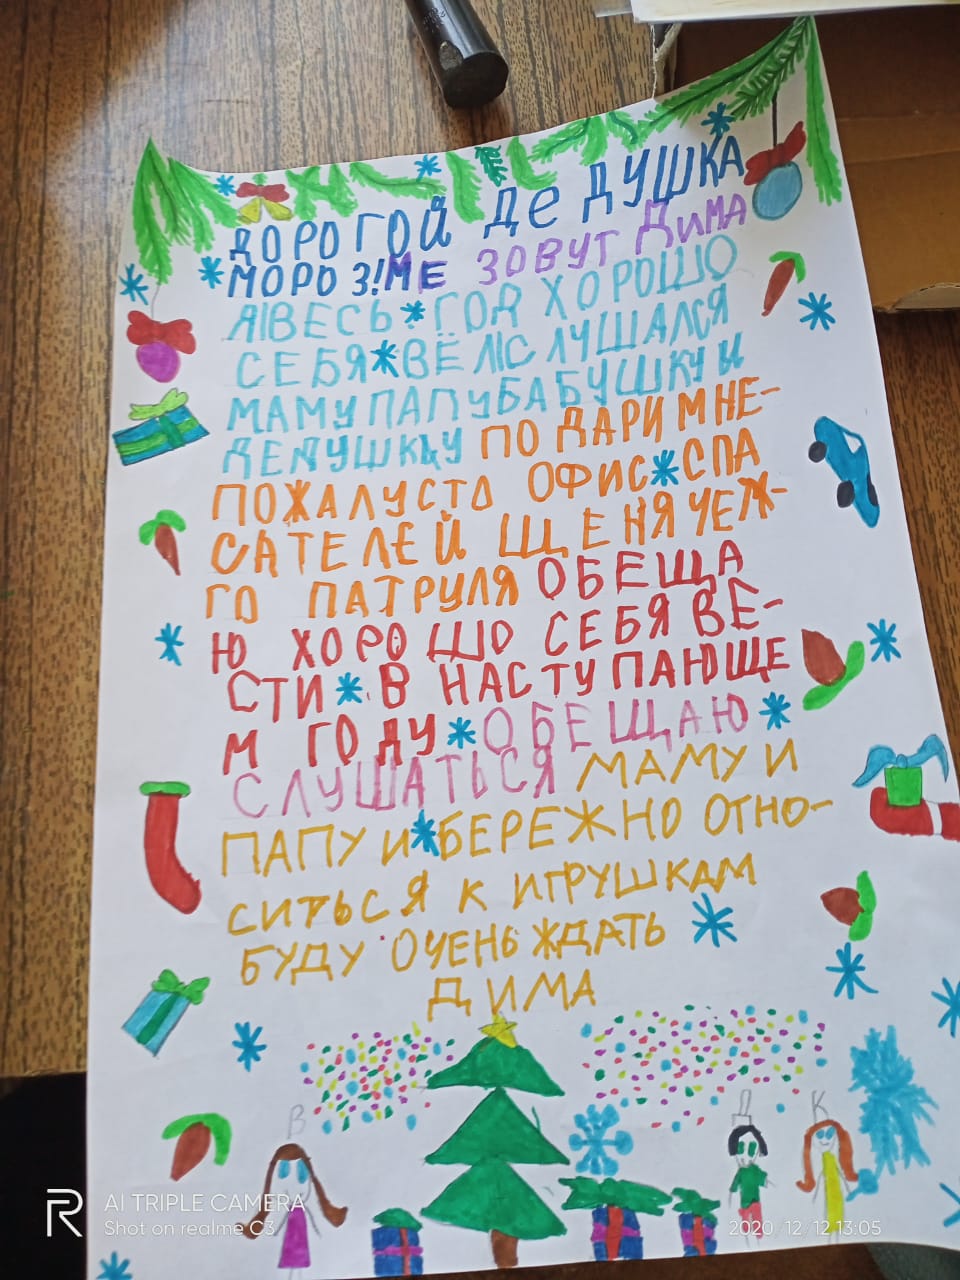 ДОРОГОЙ ДЕДУШКА
МОРОЗ!МЕ ЗОВУТ ДИМА
Я ВЕСЬ ГОД ХОРОШО
СЕБЯ ВЁЛ СЛУШАЛСЯ
МАМУ ПАПУ БАБУШКУ И
ДЕДУШКУ ПОДАРИ МНЕ-
ПОЖАЛУСТО ОФИС СПА
САТЕЛЕЙ ЩЕНЯЧЕЖ-
ГО ПАТРУЛЯ ОБЕЩА
Ю ХОРОШО СЕБЯ ВЕ-
СТИ В НАСТУПАЮЩЕ
М ГОДУ ОБЕЩАЮ
СЛУШАТЬСЯ МАМУ И
ПАПУ И БЕРЕЖНО ОТНО-
СИТЬСЯ К ИГРУШКАМ
БУДУ ОЧЕНЬ ЖДАТЬ
ДИМА
В Д К
R AI TRIPLE CAMERA
Shot on realme C3
2020/12/12 13:05